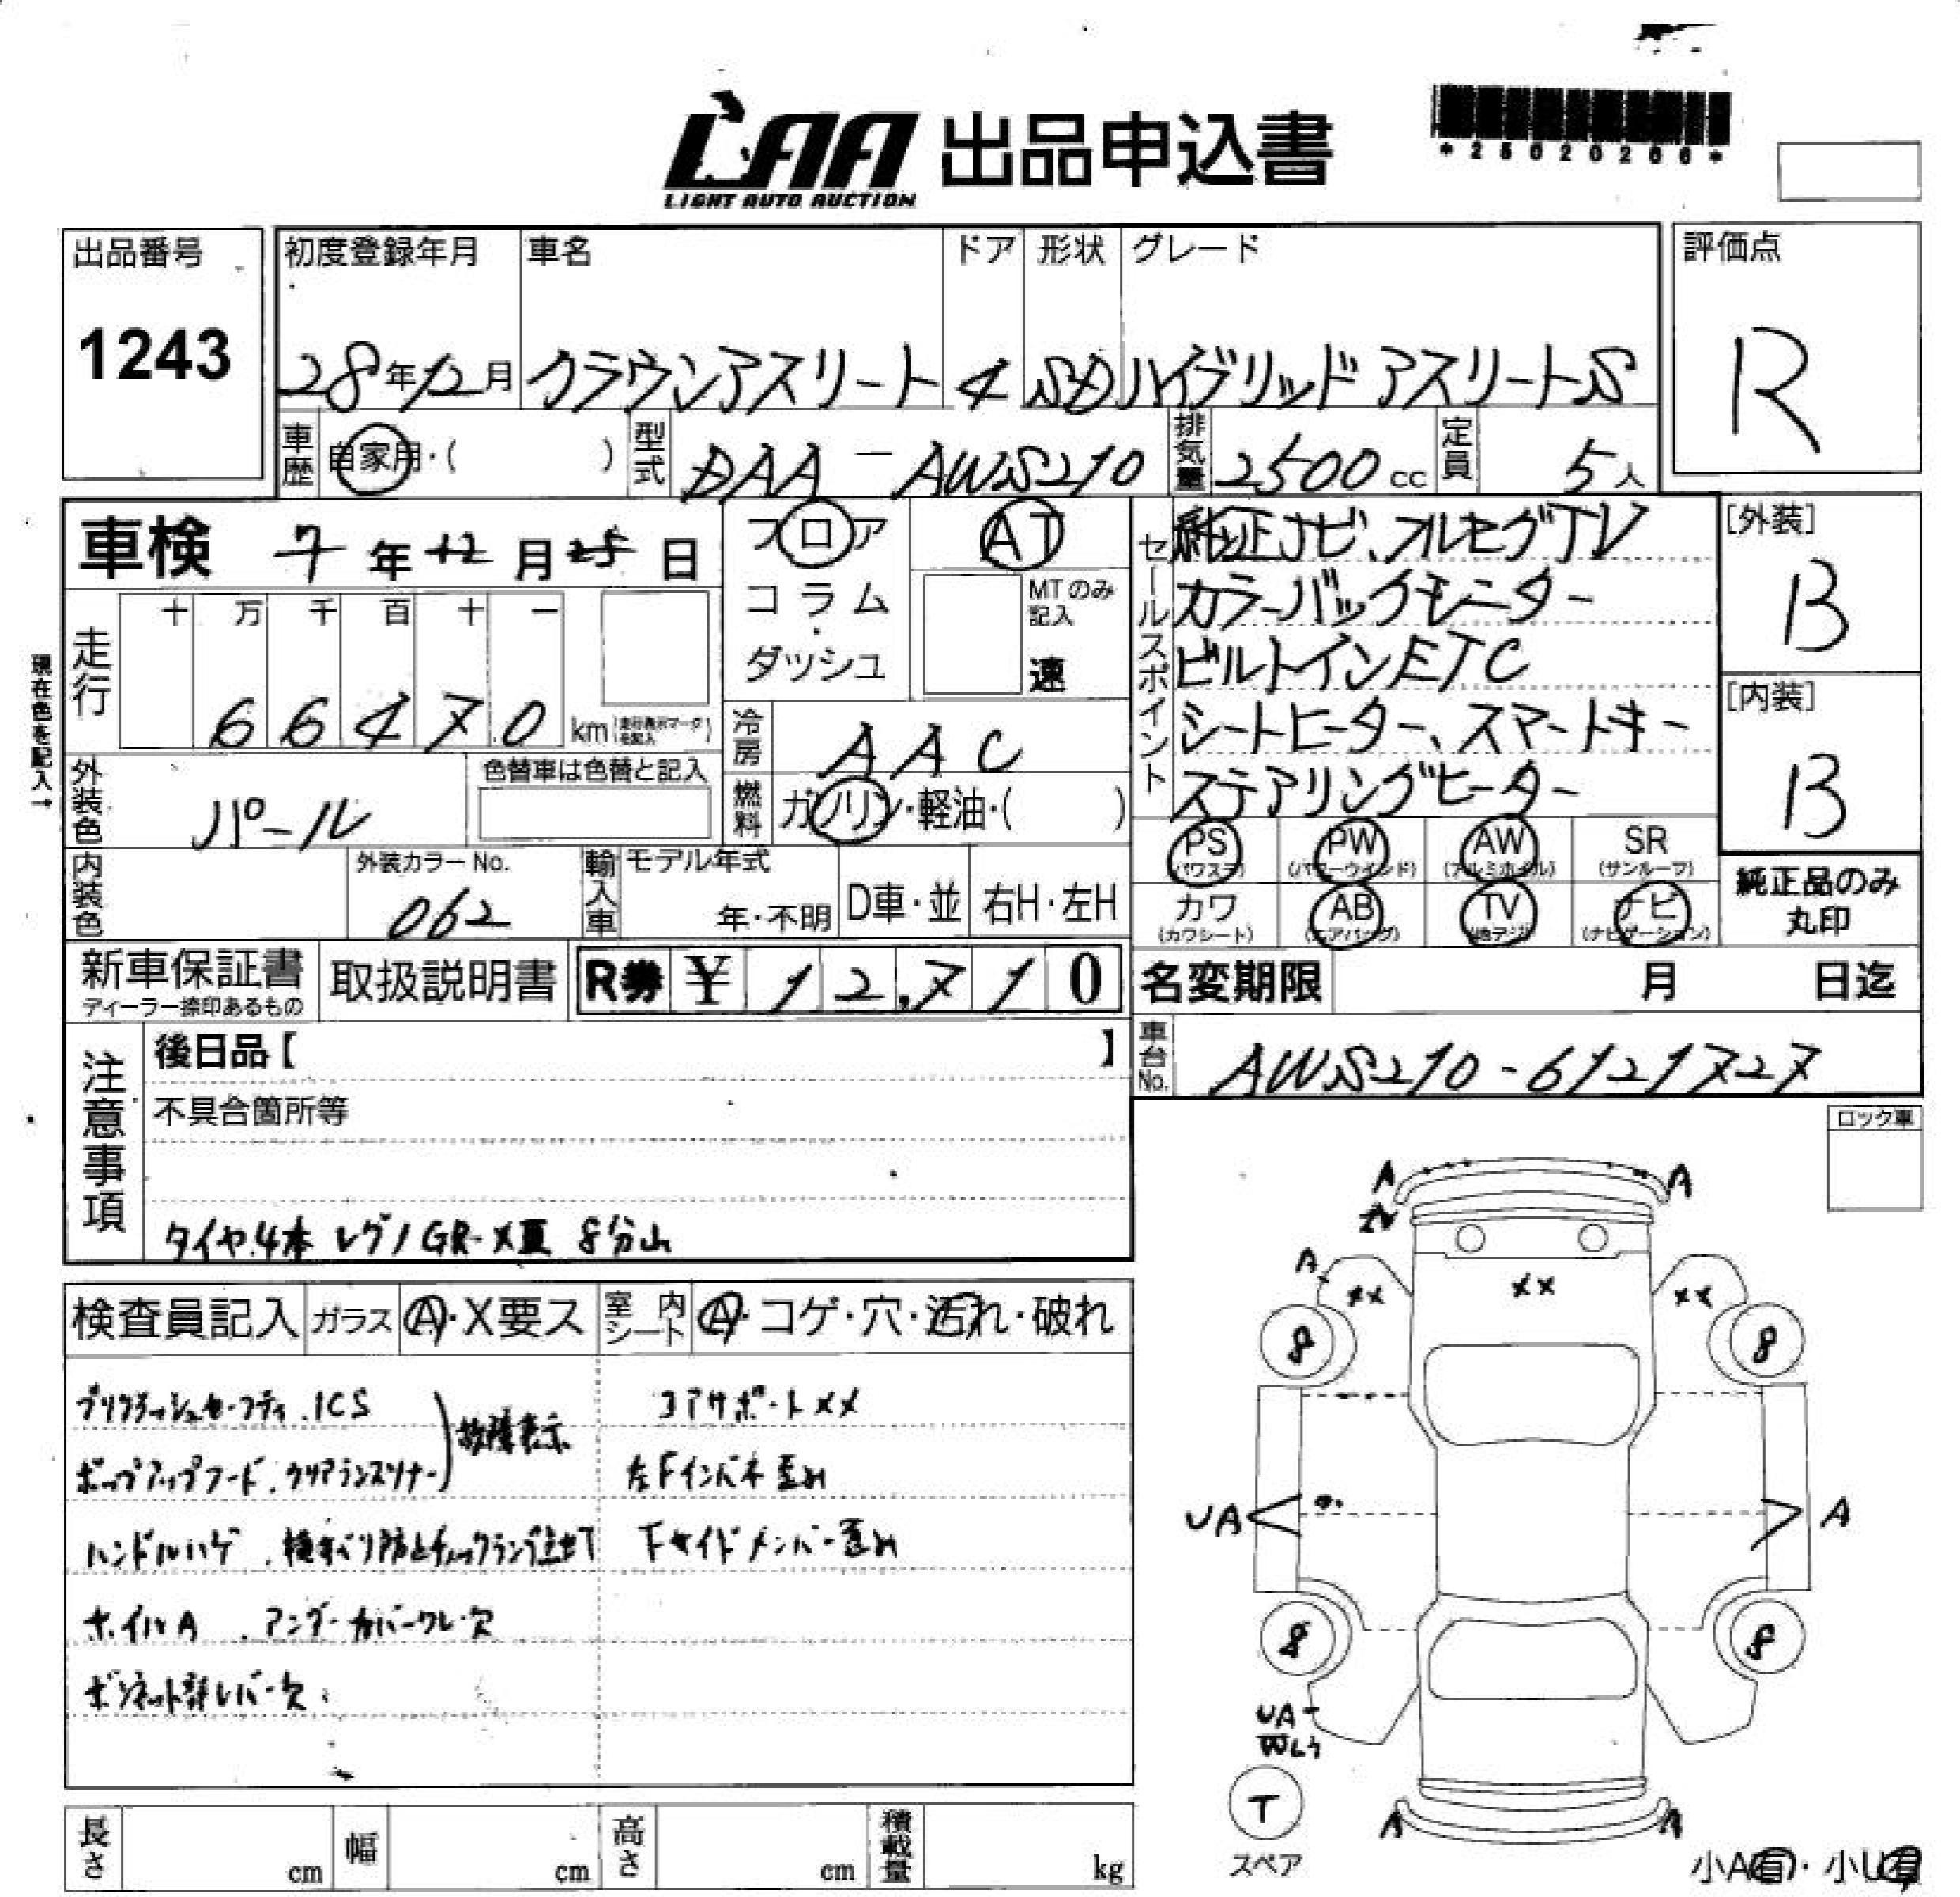 LAA 出品申込書
LIGHT AUTO AUCTION
*25020266*
出品番号
1243
初度登録年月 車名 ドア 形状 グレード
28年12月 クラウンアスリート 4 SD ハイブリッド アスリートS
評価点
R
車歴 自家用・( ) 型式 DAA-AWS210 排気量 2500cc 定員 5人
車検 7年12月25日
フロア
コラム
ダッシュ
AT
MTのみ記入
速
セールスポイント
純正ナビ、フルセグTV
カラーバックモニター
ビルトインETC
シートヒーター、スマートキー
ステアリングヒーター
[外装]
B
[内装]
B
現在色を記入→
走行 十 万 千 百 十 一
66470 km (走行表示マークを記入)
冷房 AAC
外装色 パール
色替車は色替と記入
燃料 ガソリン・軽油・( )
PS (パワステ) PW (パワーウインド) AW (アルミホイル) SR (サンルーフ)
カワ (カワシート) AB (エアバッグ) TV (地デジ) ナビ (ナビゲーション)
純正品のみ
丸印
内装色 外装カラーNo. 062
輸入車 モデル年式 年・不明 D車・並 右H・左H
新車保証書
ディーラー捺印あるもの
取扱説明書
R券 ¥12,710
名変期限 月 日迄
車台No. AWS210-6121727
注意事項
後日品【 】
不具合箇所等
タイヤ4本 レグノGR-XⅢ 8分山
ロック車
検査員記入 ガラス A・X要ス 室内シート A・コゲ・穴・汚れ・破れ
プリクラッシュセーフティ、ICS
ポップアップフード、クリアランスソナー
故障表示
ハンドルハゲ、横すべり防止チェックランプ点灯
ホイルA、アンダーカバーワレ・欠
ボンネット解レバー欠
コアサポートXX
左Fインパネ歪み
Fサイドメンバー歪み
A A
A
XX XX XX
8 8
UA A
8 8
UA
T
スペア
A A
小A有・小U有
長さ cm 幅 cm 高さ cm 積載量 kg